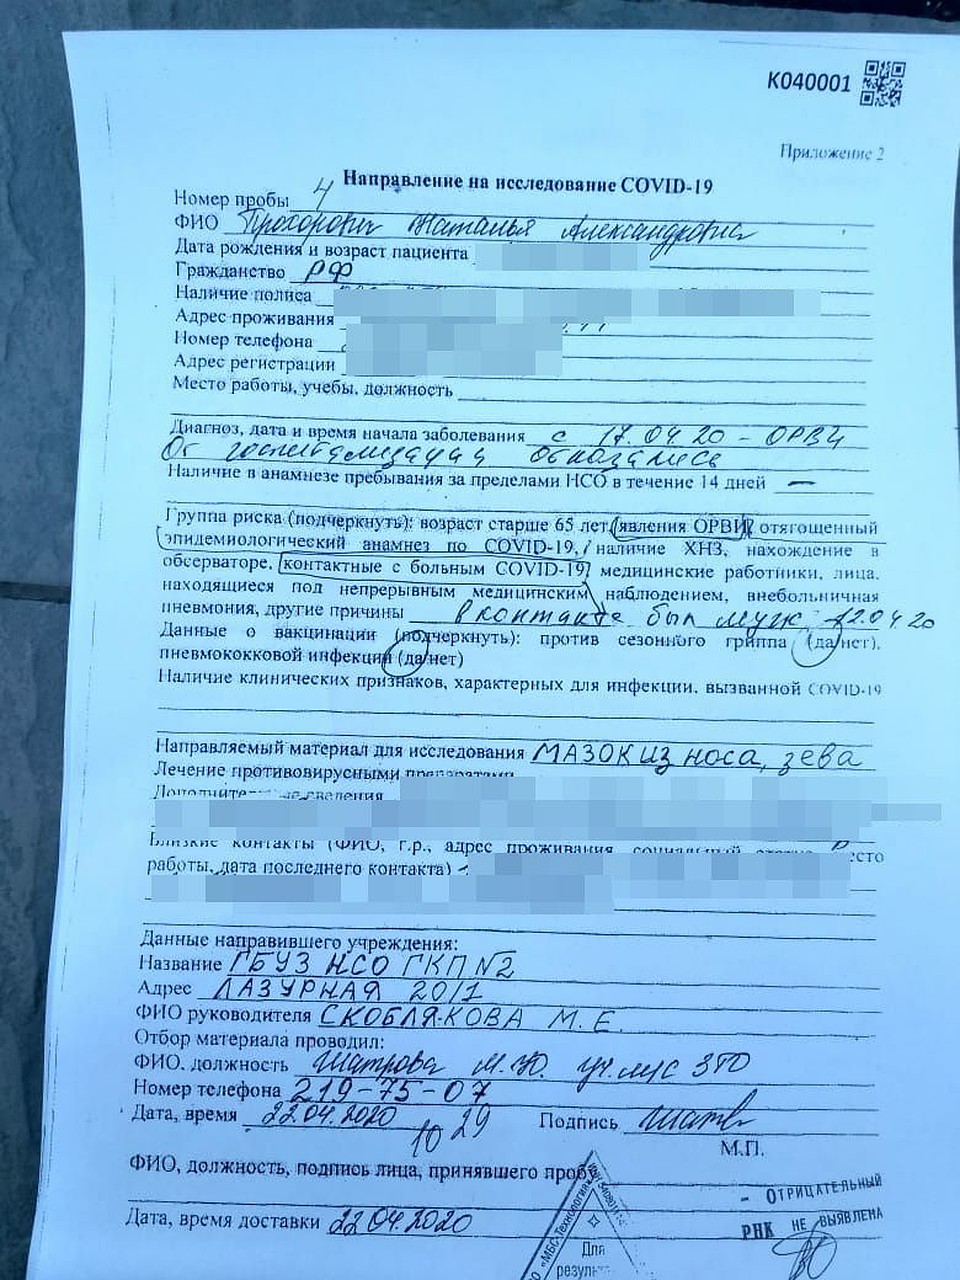 К040001
Приложение 2
Направление на исследование COVID-19
Номер пробы 4
ФИО Прохорович Наталья Александровна
Дата рождения и возраст пациента
Гражданство РФ
Наличие полиса
Адрес проживания
Номер телефона
Адрес регистрации
Место работы, учебы, должность
Диагноз, дата и время начала заболевания с 17.04.20 - ОРВИ
От госпитализации отказались
Наличие в анамнезе пребывания за пределами НСО в течение 14 дней —
Группа риска (подчеркнуть): возраст старше 65 лет, явления ОРВИ, отягощенный
эпидемиологический анамнез по COVID-19, наличие ХНЗ, нахождение в
обсерваторе, контактные с больным COVID-19, медицинские работники, лица,
находящиеся под непрерывным медицинским наблюдением, внебольничная
пневмония, другие причины в контакте был муж 12.04.20
Данные о вакцинации (подчеркнуть): против сезонного гриппа (да/нет),
пневмококковой инфекции (да/нет)
Наличие клинических признаков, характерных для инфекции, вызванной COVID-19
Направляемый материал для исследования МАЗОК ИЗ носа, зева
Лечение противовирусными препаратами
Дополнительные сведения
Близкие контакты (ФИО, г.р., адрес проживания, социальный статус, место
работы, дата последнего контакта) -
Данные направившего учреждения:
Название ГБУЗ НСО ГКП №2
Адрес ЛАЗУРНАЯ 20/1
ФИО руководителя СКОБЛЯКОВА М. Е.
Отбор материала проводил:
ФИО, должность Шатрова М.Ю.
Номер телефона 219-75-07
Дата, время 22.04.2020 10 29 Подпись
М.П.
ФИО, должность, подпись лица, принявшего пробу
Дата, время доставки 22.04.2020
«МБС-Технология»
Для
- ОТРИЦАТЕЛЬНЫЙ
РНК НЕ ВЫЯВЛЕНА